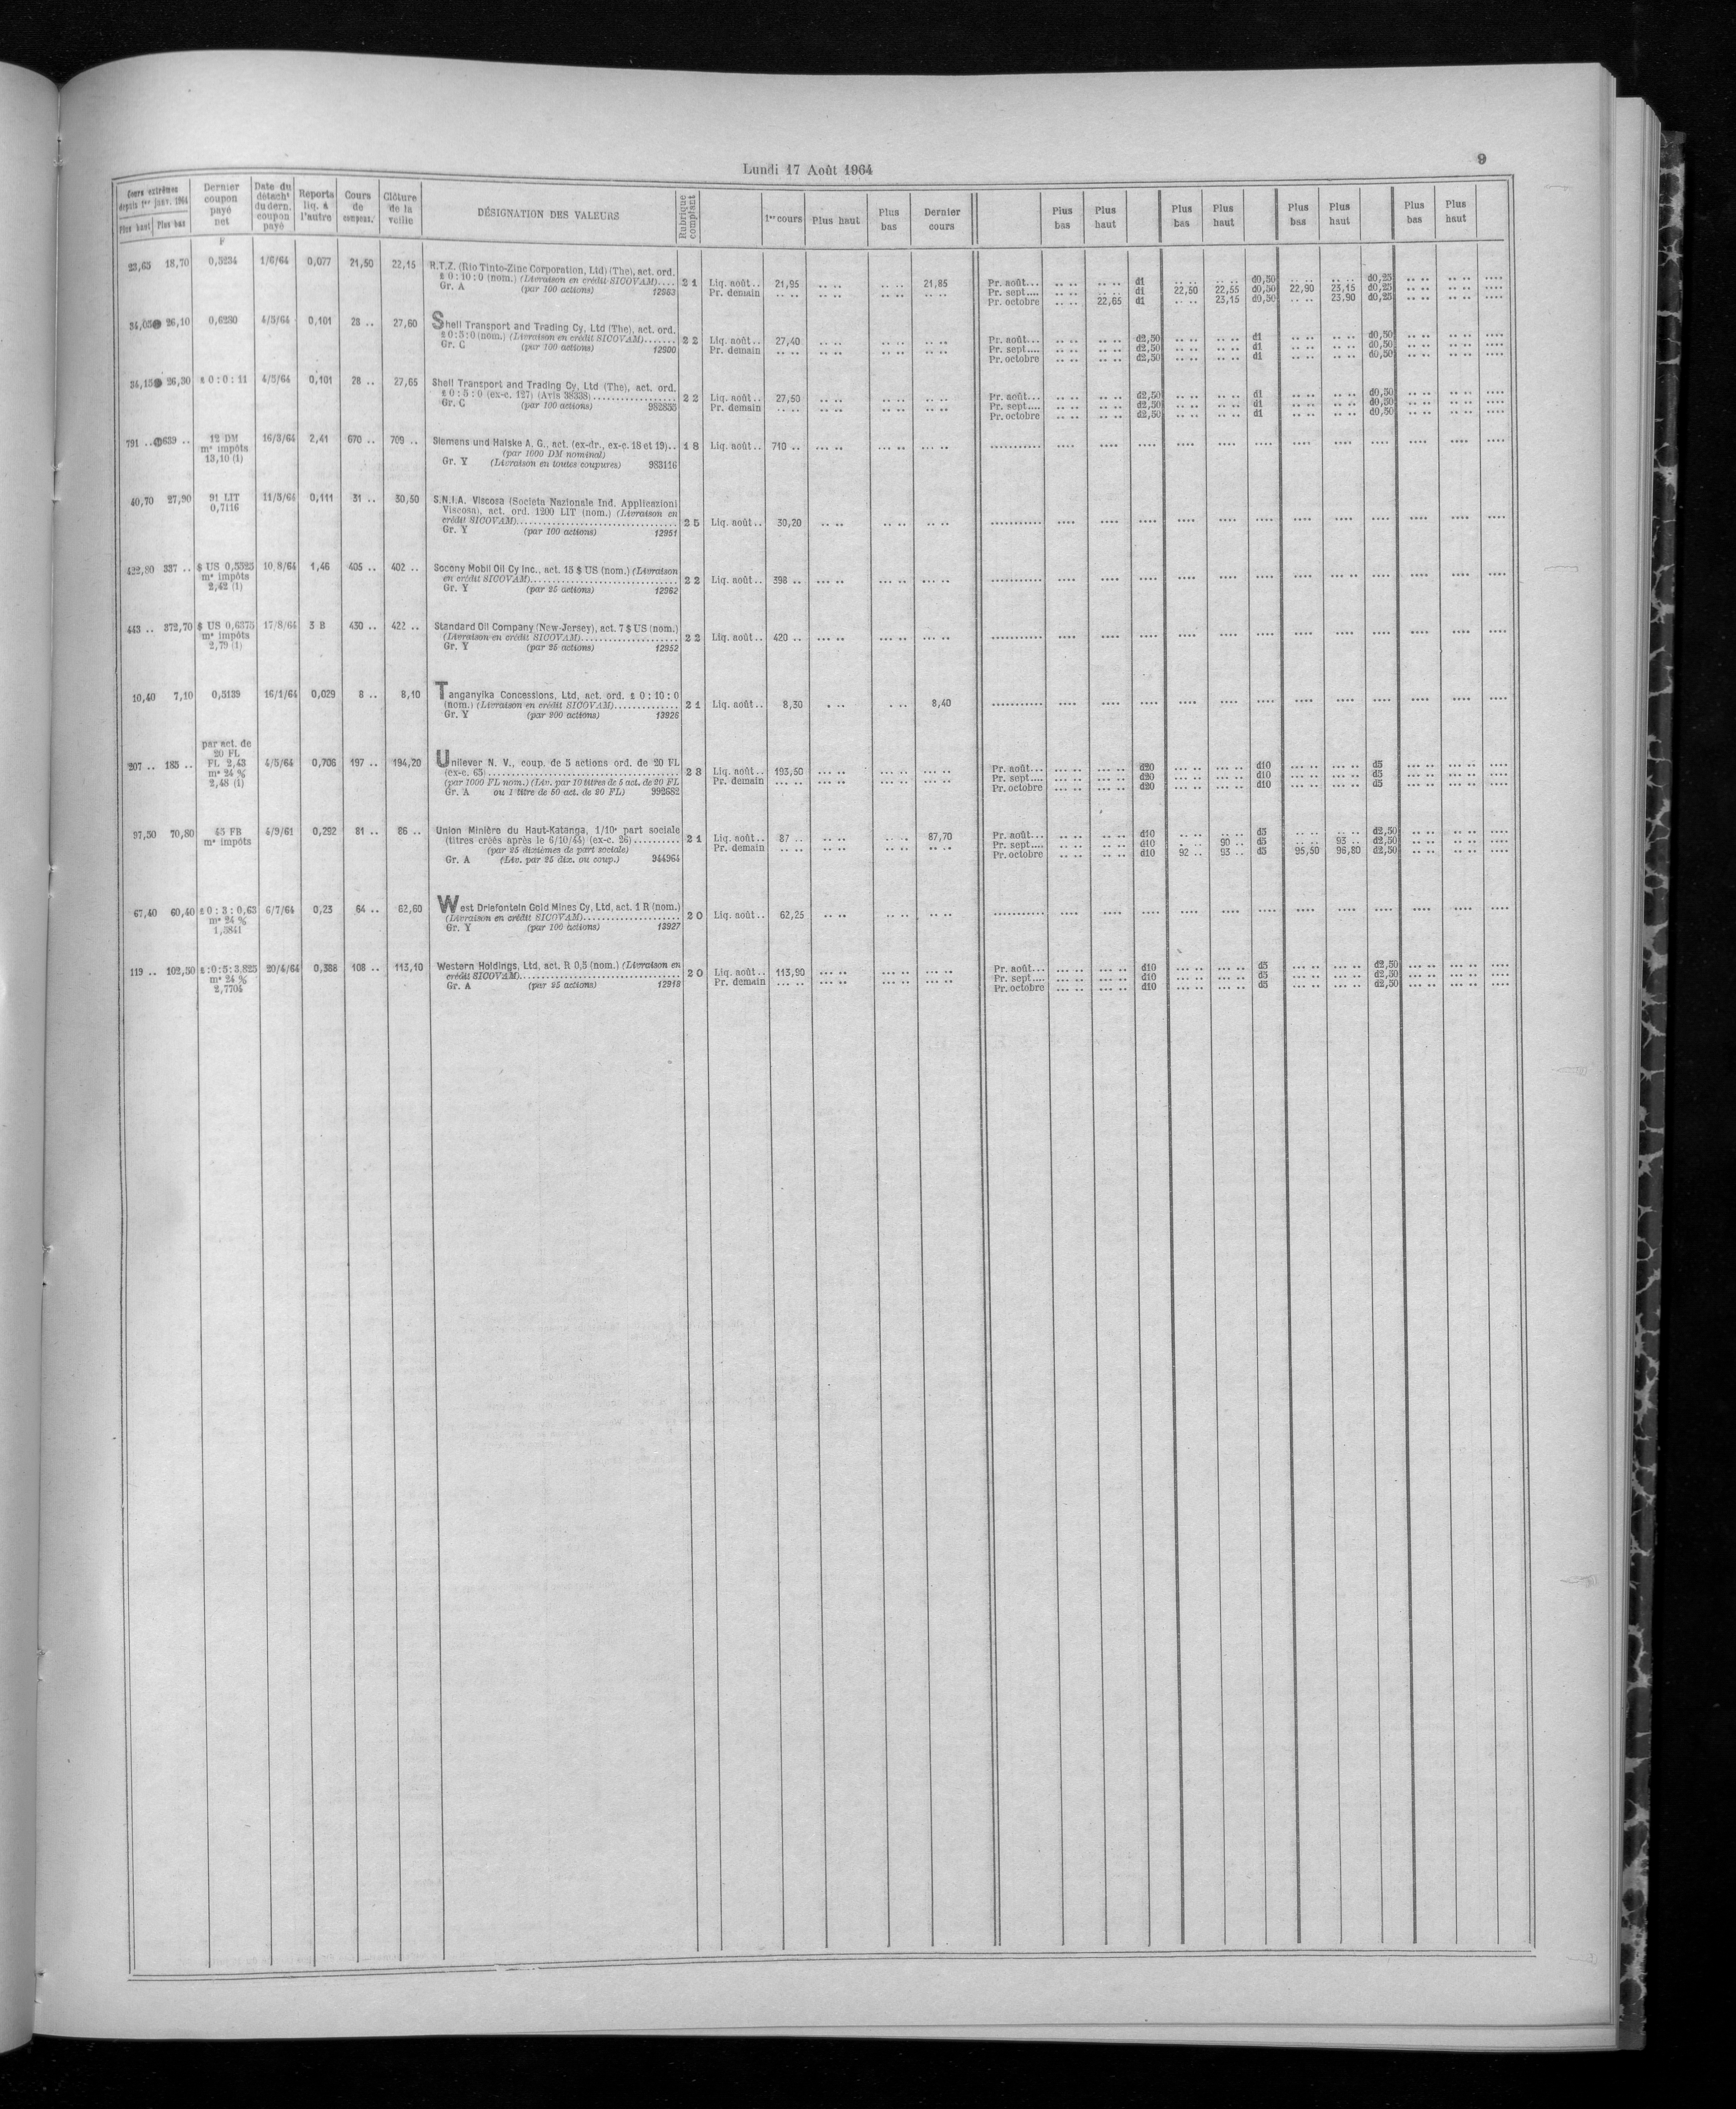 Lundi 17 Août 1964
9
Cours extrêmes depuis 1er janv. 1964 Plus haut Plus bas | Dernier coupon payé net | Date du détacht du dern. coupon payé | Reports liq. à l'autre | Cours de compens. | Clôture de la veille | DÉSIGNATION DES VALEURS | Rubrique comptant | 1er cours | Plus haut | Plus bas | Dernier cours | Plus bas | Plus haut | Plus bas | Plus haut | Plus bas | Plus haut | Plus bas | Plus haut
F
23,65 18,70 0,5234 1/6/64 0,077 21,50 22,15 R.T.Z. (Rio Tinto-Zinc Corporation, Ltd) (The), act. ord.
£ 0:10:0 (nom.) (Livraison en crédit SICOVAM).... 21 Liq. août.. 21,95 .. .. .. .. 21,85 Pr. août... .. .. .. .. d1 .. .. .. .. d0,50 .. .. .. .. d0,25 .. .. .. .. ....
Gr. A (par 100 actions) 12563 Pr. demain .. .. .. .. .. .. .. .. Pr. sept.... .. .. .. .. d1 22,50 22,55 d0,50 22,90 23,15 d0,25 .. .. .. .. ....
Pr. octobre .. .. 22,65 d1 .. .. 23,15 d0,50 .. .. 23,90 d0,25 .. .. .. .. ....
34,05 26,10 0,6280 4/5/64 0,101 28 .. 27,60 Shell Transport and Trading Cy, Ltd (The), act. ord.
£ 0:5:0 (nom.) (Livraison en crédit SICOVAM)....... 22 Liq. août.. 27,40 .. .. .. .. .. .. Pr. août... .. .. .. .. d2,50 .. .. .. .. d1 .. .. .. .. d0,50 .. .. .. .. ....
Gr. C (par 100 actions) 12900 Pr. demain .. .. .. .. .. .. .. .. Pr. sept.... .. .. .. .. d2,50 .. .. .. .. d1 .. .. .. .. d0,50 .. .. .. .. ....
Pr. octobre .. .. .. .. d2,50 .. .. .. .. d1 .. .. .. .. d0,50 .. .. .. .. ....
34,15 26,30 £ 0:0:11 4/5/64 0,101 28 .. 27,65 Shell Transport and Trading Cy, Ltd (The), act. ord.
£ 0:5:0 (ex-c. 127) (Avis 38338)................. 22 Liq. août.. 27,50 .. .. .. .. .. .. Pr. août... .. .. .. .. d2,50 .. .. .. .. d1 .. .. .. .. d0,50 .. .. .. .. ....
Gr. C (par 100 actions) 982835 Pr. demain .. .. .. .. .. .. .. .. Pr. sept.... .. .. .. .. d2,50 .. .. .. .. d1 .. .. .. .. d0,50 .. .. .. .. ....
Pr. octobre .. .. .. .. d2,50 .. .. .. .. d1 .. .. .. .. d0,50 .. .. .. .. ....
791 .. 639 .. 12 DM 16/3/64 2,41 670 .. 709 .. Siemens und Halske A. G., act. (ex-dr., ex-c. 18 et 19).. 18 Liq. août.. 710 .. ... .. ... .. ... ..
ms impôts (par 1000 DM nominal)
13,10 (1) Gr. Y (Livraison en toutes coupures) 983116
40,70 27,90 91 LIT 11/5/64 0,111 31 .. 30,50 S.N.I.A. Viscosa (Societa Nazionale Ind. Applicazioni
0,7116 Viscosa), act. ord. 1200 LIT (nom.) (Livraison en
crédit SICOVAM)................................ 25 Liq. août.. 30,20 .. .. .. .. .. ..
Gr. Y (par 100 actions) 12951
422,80 337 .. $ US 0,5525 10/8/64 1,46 405 .. 402 .. Socony Mobil Oil Cy Inc., act. 15 $ US (nom.) (Livraison
ms impôts en crédit SICOVAM)............................. 22 Liq. août.. 398 .. ... .. ... .. ... ..
2,42 (1) Gr. Y (par 25 actions) 12962
443 .. 372,70 $ US 0,6375 17/8/64 3 B 430 .. 422 .. Standard Oil Company (New-Jersey), act. 7 $ US (nom.)
ms impôts (Livraison en crédit SICOVAM)................... 22 Liq. août.. 420 .. ... .. ... .. ... ..
2,79 (1) Gr. Y (par 25 actions) 12952
10,40 7,10 0,5139 16/1/64 0,029 8 .. 8,10 Tanganyika Concessions, Ltd, act. ord. £ 0:10:0
(nom.) (Livraison en crédit SICOVAM)............. 21 Liq. août.. 8,30 . .. . .. 8,40
Gr. Y (par 200 actions) 13926
par act. de
20 FL
207 .. 185 .. FL 2,43 4/5/64 0,706 197 .. 194,20 Unilever N. V., coup. de 5 actions ord. de 20 FL
ms 24 % (ex-c. 65)...................................... 28 Liq. août.. 193,50 ... .. ... .. ... .. Pr. août... ... .. ... .. d20 ... .. ... .. d10 ... .. ... .. d5 .. .. .. .. ....
2,48 (1) (par 1000 FL nom.) (Liv. par 10 titres de 5 act. de 20 FL Pr. demain ... .. ... .. ... .. ... .. Pr. sept.... ... .. ... .. d20 ... .. ... .. d10 ... .. ... .. d5 .. .. .. .. ....
Gr. A ou 1 titre de 50 act. de 20 FL) 992682 Pr. octobre ... .. ... .. d20 ... .. ... .. d10 ... .. ... .. d5 .. .. .. .. ....
97,50 70,80 45 FB 4/9/61 0,292 81 .. 86 .. Union Minière du Haut-Katanga, 1/10e part sociale
ms impôts (titres créés après le 6/10/44) (ex-c. 26).......... 21 Liq. août.. 87 .. .. .. .. .. 87,70 Pr. août... .. .. .. .. d10 .. .. .. .. d5 .. .. .. .. d2,50 .. .. .. .. ....
(par 25 dixièmes de part sociale) Pr. demain .. .. .. .. .. .. .. .. Pr. sept.... .. .. .. .. d10 . .. 90 .. d5 .. .. 93 .. d2,50 .. .. .. .. ....
Gr. A (Liv. par 25 dix. ou coup.) 944964 Pr. octobre .. .. .. .. d10 92 .. 93 .. d5 95,50 96,80 d2,50 .. .. .. .. ....
67,40 60,40 £ 0:3:0,63 6/7/64 0,23 64 .. 62,60 West Driefontein Gold Mines Cy, Ltd, act. 1 R (nom.)
ms 24 % (Livraison en crédit SICOVAM)................... 20 Liq. août.. 62,25 .. .. .. .. .. ..
1,3841 Gr. Y (par 100 actions) 13927
119 .. 102,50 £:0:5:3,825 20/4/64 0,388 108 .. 113,10 Western Holdings, Ltd, act. R 0,5 (nom.) (Livraison en
ms 24 % crédit SICOVAM)................................ 20 Liq. août.. 113,90 ... .. ... .. ... .. Pr. août... ... .. ... .. d10 ... .. ... .. d5 ... .. ... .. d2,50 ... .. ... .. ....
2,7704 Gr. A (par 25 actions) 12918 Pr. demain ... .. ... .. ... .. ... .. Pr. sept.... ... .. ... .. d10 ... .. ... .. d5 ... .. ... .. d2,50 ... .. ... .. ....
Pr. octobre ... .. ... .. d10 ... .. ... .. d5 ... .. ... .. d2,50 ... .. ... .. ....